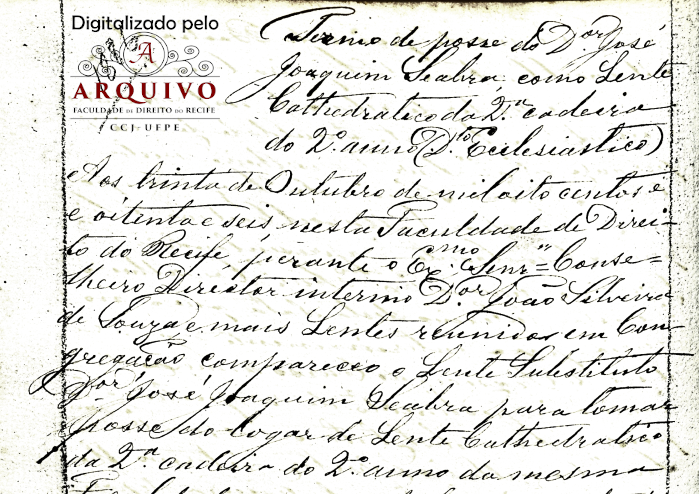 Digitalizado pelo
A
ARQUIVO
FACULDADE DE DIREITO DO RECIFE
CCJ-UFPE
Termo de posse do Dor José
Joaquim Seabra como Lente
Cathedratico da 2.a cadeira
do 2.o anno (D.to Ecclesiastico)
Aos trinta de Outubro de mil oito centos e
e oitenta e seis nesta Faculdade de Direi-
to do Recife, perante o Ex.mo Senr. Conse=
lheiro Director interino Dor João Silveira
de Souza e mais Lentes reunidos em Con
gregação compareceo o Lente Substituto
Dor José Joaquim Seabra para tomar
posse do logar de Lente Cathedratico
da 2.a cadeira do 2.o anno da mesma